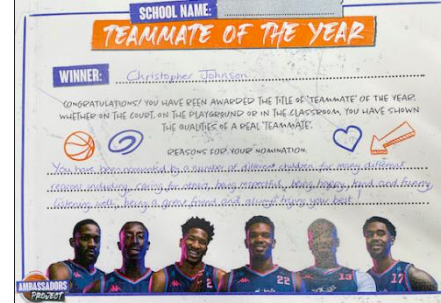 SCHOOL NAME:
TEAMMATE OF THE YEAR
WINNER: Christopher Johnson
CONGRATULATIONS! YOU HAVE BEEN AWARDED THE TITLE OF 'TEAMMATE' OF THE YEAR.
WHETHER ON THE COURT, ON THE PLAYGROUND OR IN THE CLASSROOM, YOU HAVE SHOWN
THE QUALITIES OF A REAL 'TEAMMATE'.
REASONS FOR YOUR NOMINATION:
You have been nominated by a number of different children for many different
reasons including, caring for others, being respectful, being happy, kind and funny
listening well, being a great friend and always trying your best!
22
13
17
AMBASSADORS
PROJECT